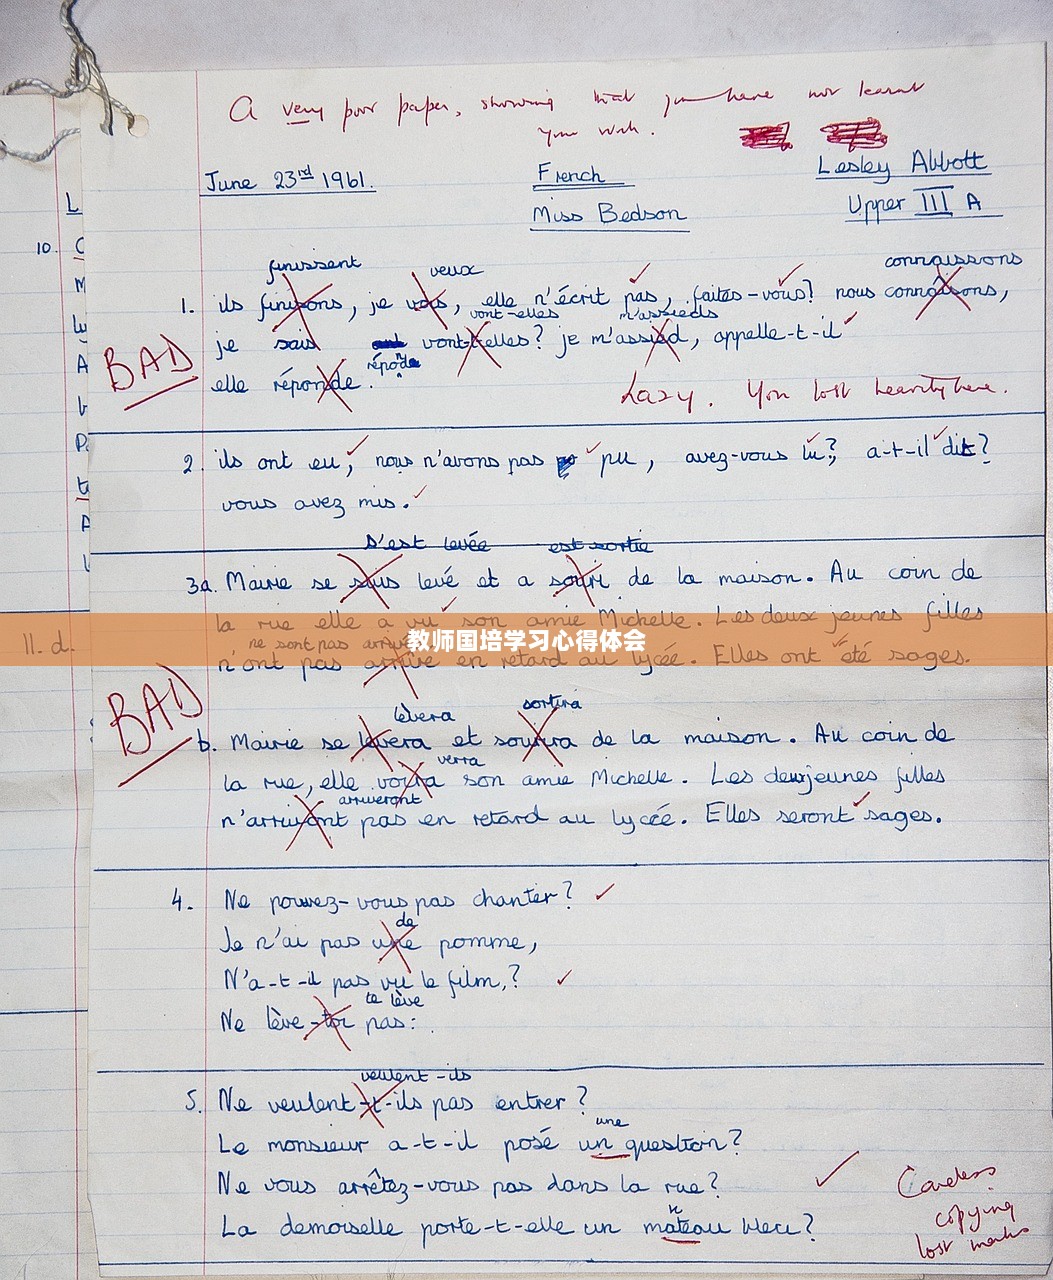 A very poor paper, showing that you have not learnt
your work.
June 23rd 1961.
French
Lesley Abbott
Miss Bedson
Upper III A
L
10. C
M
A
P
A
11. d.
finissent veux connaissons
1. ils finisons, je vois, elle n'écrit pas, faites-vous? nous connaisons,
vont-elles m'assieds
BAD
je sais vont-t-elles? je m'assied, appelle-t-il
réponde
elle réponde.
Lazy. You lost heavily here.
2. ils ont eu, nous n'avons pas pu, avez-vous lu?, a-t-il dit?
vous avez mis.
s'est levée est sortie
3a. Mairie se suis levé et a souri de la maison. Au coin de
la rue elle a vu son amie Michelle. Les deux jeunes filles
ne sont pas
教师国培学习心得体会
n'ont pas arrivé en retard au lycée. Elles ont été sages.
BAD
lèvera sortira
b. Mairie se levera et sourira de la maison. Au coin de
verra
la rue, elle voira son amie Michelle. Les deux jeunes filles
arriveront
n'arrivont pas en retard au lycée. Elles seront sages.
4. Ne pouvez-vous pas chanter?
de
Je n'ai pas une pomme,
N'a-t-il pas vu le film,?
te lève
Ne lève-toi pas:
veulent-ils
5. Ne veulent-t-ils pas entrer?
une
Le monsieur a-t-il posé un question?
Ne vous arrêtez-vous pas dans la rue?
La demoiselle porte-t-elle un mateau bleu?
Careless
copying
lost marks